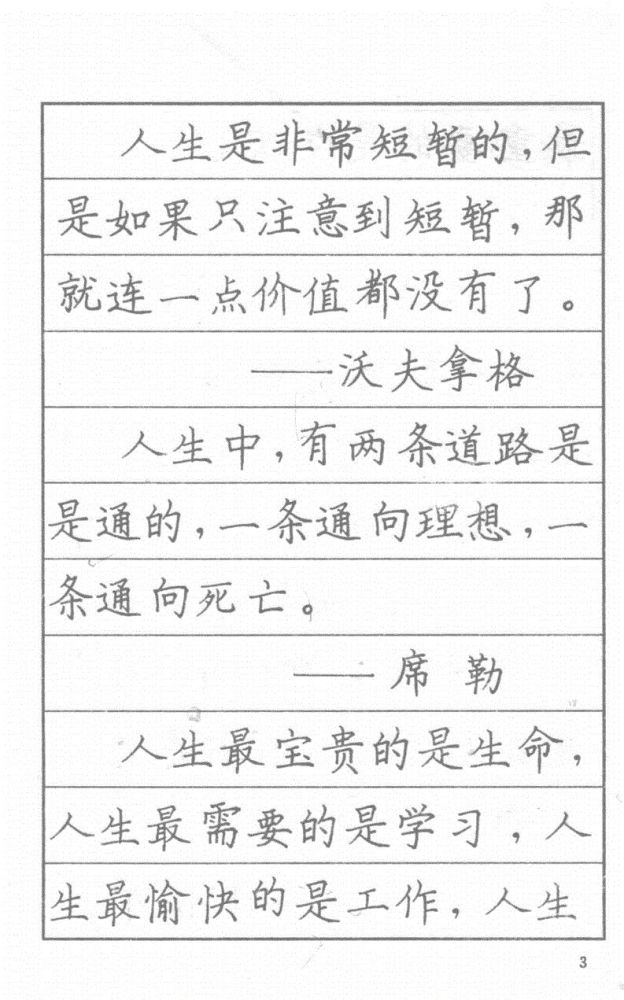 人生是非常短暂的，但
是如果只注意到短暂，那
就连一点价值都没有了。
——沃夫拿格
人生中，有两条道路是
是通的，一条通向理想，一
条通向死亡。
——席 勒
人生最宝贵的是生命，
人生最需要的是学习，人
生最愉快的是工作，人生
3